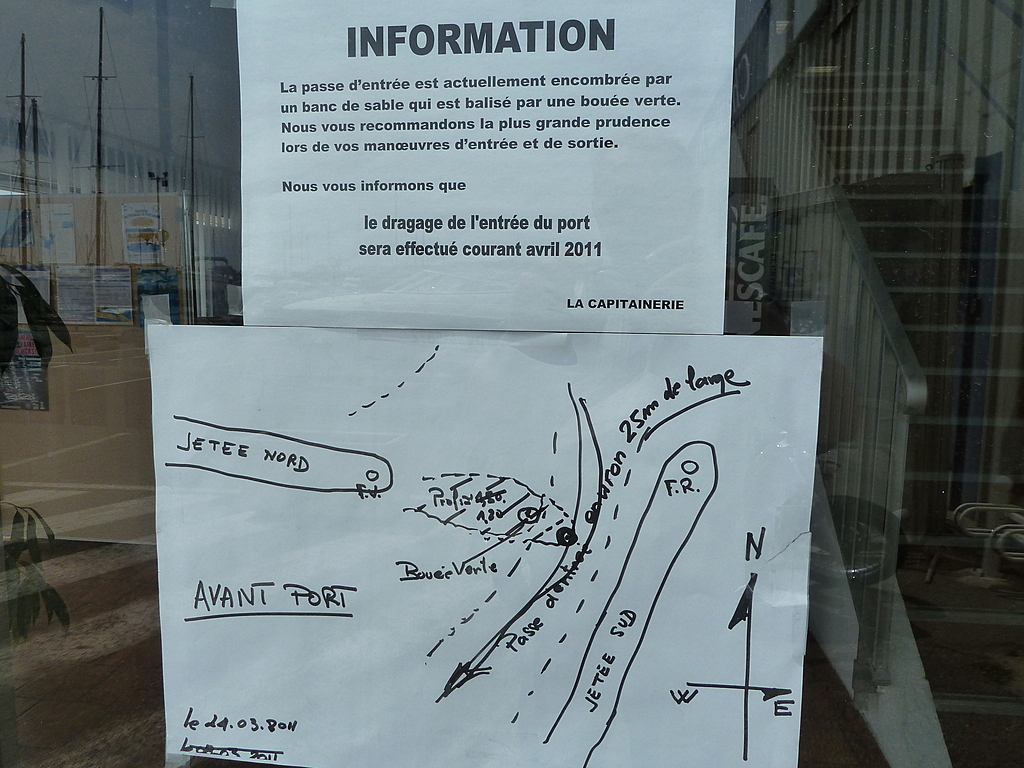 INFORMATION
La passe d'entrée est actuellement encombrée par
un banc de sable qui est balisé par une bouée verte.
Nous vous recommandons la plus grande prudence
lors de vos manœuvres d'entrée et de sortie.
Nous vous informons que
le dragage de l'entrée du port
sera effectué courant avril 2011
LA CAPITAINERIE
ESCAFÉ
JETEE NORD
F.V.
Passe d'entrée environ 25m de large
F.R.
1,80
Bouée Verte
AVANT PORT
JETEE SUD
N
W
E
le 24.03.2011